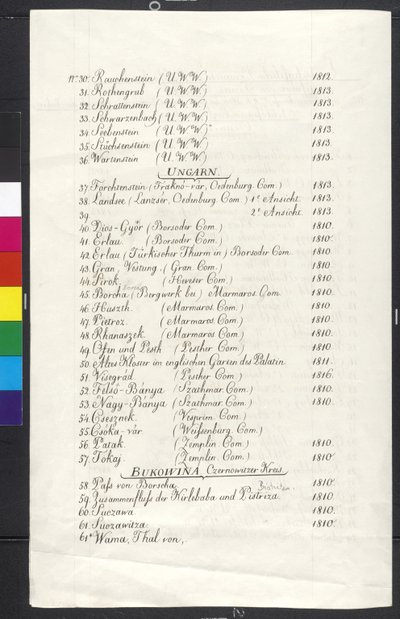 No 30. Rauchenstein (U. W. W.) 1812.
31. Rothengrub (U. W. W.) 1813.
32. Schrattenstein (U. W. W.) 1813.
33. Schwarzenbach (U. W. W.) 1813.
34. Seebenstein (U. W. W.) 1813.
35. Stüchsenstein (U. W. W.) 1813.
36. Wartenstein (U. W. W.) 1813.
UNGARN.
37. Forchtenstein (Fraknó-vár, Oedenburg. Com.) 1813.
38. Landsee (Lanzsér, Oedenburg. Com.) 1e Ansicht. 1813.
39. 2e Ansicht. 1813.
40. Dios-Györ (Borsoder Com.) 1810.
41. Erlau. (Borsoder Com.) 1810.
42. Erlau (Türkischer Thurm in) Borsoder Com. 1810.
43. Gran, Vestung. (Gran. Com.) 1810.
44. Sirok. (Heveser Com.) 1810.
45. Borcha (Bergwerk bei) Marmaros. Com. 1810.
46. Huszth. (Marmaros. Com.) 1810.
47. Pietroz. (Marmaros. Com.) 1810.
48. Rhanaszek. (Marmaros. Com.) 1810.
49. Ofen und Pesth. (Pesther Com.) 1810.
50. Altes Kloster im englischen Garten des Palatin. 1811.
51. Visegrád. (Pesther Com.) 1816.
52. Felsö-Bánya (Szathmar. Com.) 1810.
53. Nagy-Bánya (Szathmar. Com.) 1810.
54. Csesznek. (Vesprim. Com.)
55. Csóka-vár (Weißenburg. Com.)
56. Patak (Zemplin. Com.) 1810.
57. Tokaj. (Zemplin. Com.) 1810.
BUKOWINA, Czernowitzer Kreis.
58. Paß von Borscha. 1810.
59. Zusammenfluß der Kirlebaba und Pistriza. 1810.
60. Suczawa 1810.
61. Suczawitza 1810.
61a Wama, Thal von,.